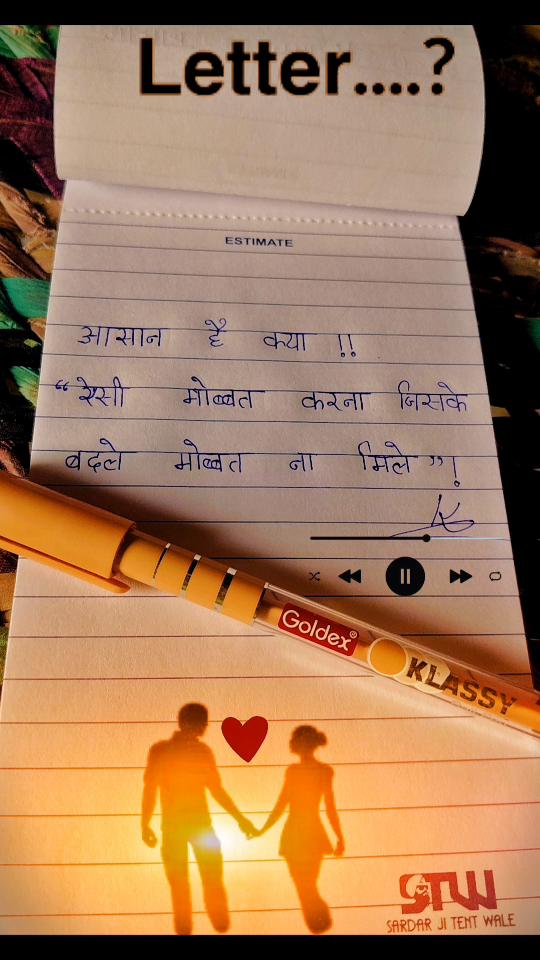 Letter....?
ESTIMATE
आसान है क्या !!
“ऐसी मोब्बत करना जिसके
बदले मोब्बत ना मिले”!
Goldex®
KLASSY
STW
SARDAR JI TENT WALE